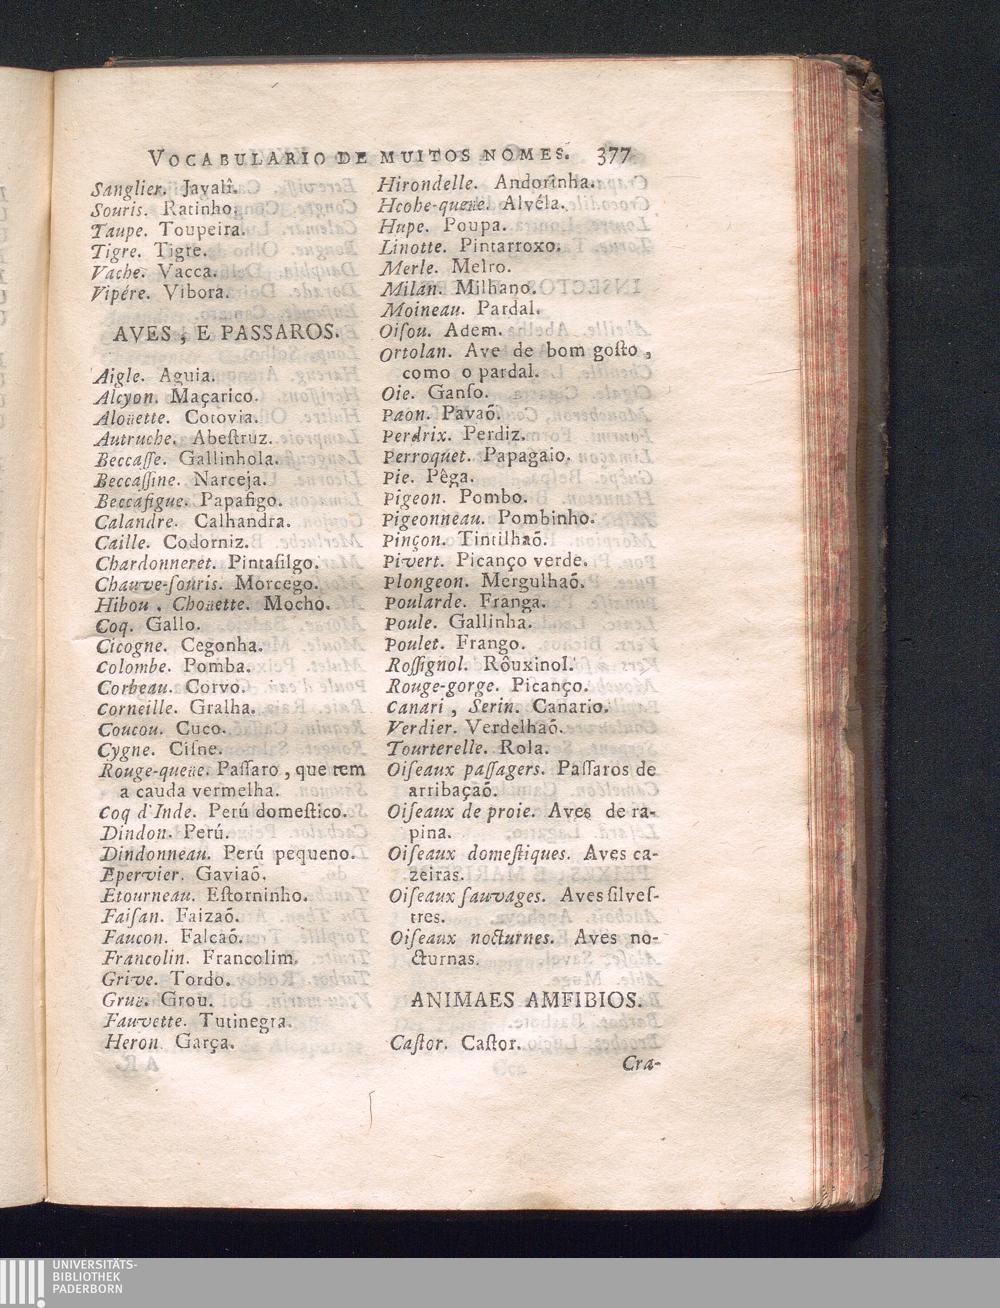 VOCABULARIO DE MUITOS NOMES. 377
Sanglier. Javalî.
Souris. Ratinho.
Taupe. Toupeira.
Tigre. Tigre.
Vache. Vacca.
Vipére. Vibora.
AVES, E PASSAROS.
Aigle. Aguia.
Alcyon. Maçarico.
Aloüette. Cotovia.
Autruche. Abeſtruz.
Beccaſſe. Gallinhola.
Beccaſſine. Narceja.
Beccafigue. Papafigo.
Calandre. Calhandra.
Caille. Codorniz.
Chardonneret. Pintaſilgo.
Chauve-ſouris. Morcego.
Hibou, Choüette. Mocho.
Coq. Gallo.
Cicogne. Cegonha.
Colombe. Pomba.
Corbeau. Corvo.
Corneille. Gralha.
Coucou. Cuco.
Cygne. Ciſne.
Rouge-queüe. Paſſaro, que tem
a cauda vermelha.
Coq d'Inde. Perú domeſtico.
Dindon. Perú.
Dindonneau. Perú pequeno.
Epervier. Gaviaõ.
Etourneau. Eſtorninho.
Faiſan. Faizaõ.
Faucon. Falcaõ.
Francolin. Francolim.
Grive. Tordo.
Gruë. Grou.
Fauvette. Tutinegra.
Heron. Garça.
Hirondelle. Andorînha.
Hcohe-queüe. Alvéla.
Hupe. Poupa.
Linotte. Pintarroxo.
Merle. Melro.
Milan. Milhano.
Moineau. Pardal.
Oiſou. Adem.
Ortolan. Ave de bom goſto,
como o pardal.
Oie. Ganſo.
Paon. Pavaõ.
Perdrix. Perdiz.
Perroquet. Papagaio.
Pie. Pêga.
Pigeon. Pombo.
Pigeonneau. Pombinho.
Pinçon. Tintilhaõ.
Pivert. Picanço verde.
Plongeon. Mergulhaõ.
Poularde. Franga.
Poule. Gallinha.
Poulet. Frango.
Roſſignol. Rôuxinol.
Rouge-gorge. Picanço.
Canari, Serin. Canario.
Verdier. Verdelhaõ.
Tourterelle. Rola.
Oiſeaux paſſagers. Paſſaros de
arribaçaõ.
Oiſeaux de proie. Aves de ra-
pina.
Oiſeaux domeſtiques. Aves ca-
zeiras.
Oiſeaux ſauvages. Aves ſilveſ-
tres.
Oiſeaux nocturnes. Aves no-
cturnas.
ANIMAES AMFIBIOS.
Caſtor. Caſtor.
Cra-
UNIVERSITÄTS-
BIBLIOTHEK
PADERBORN